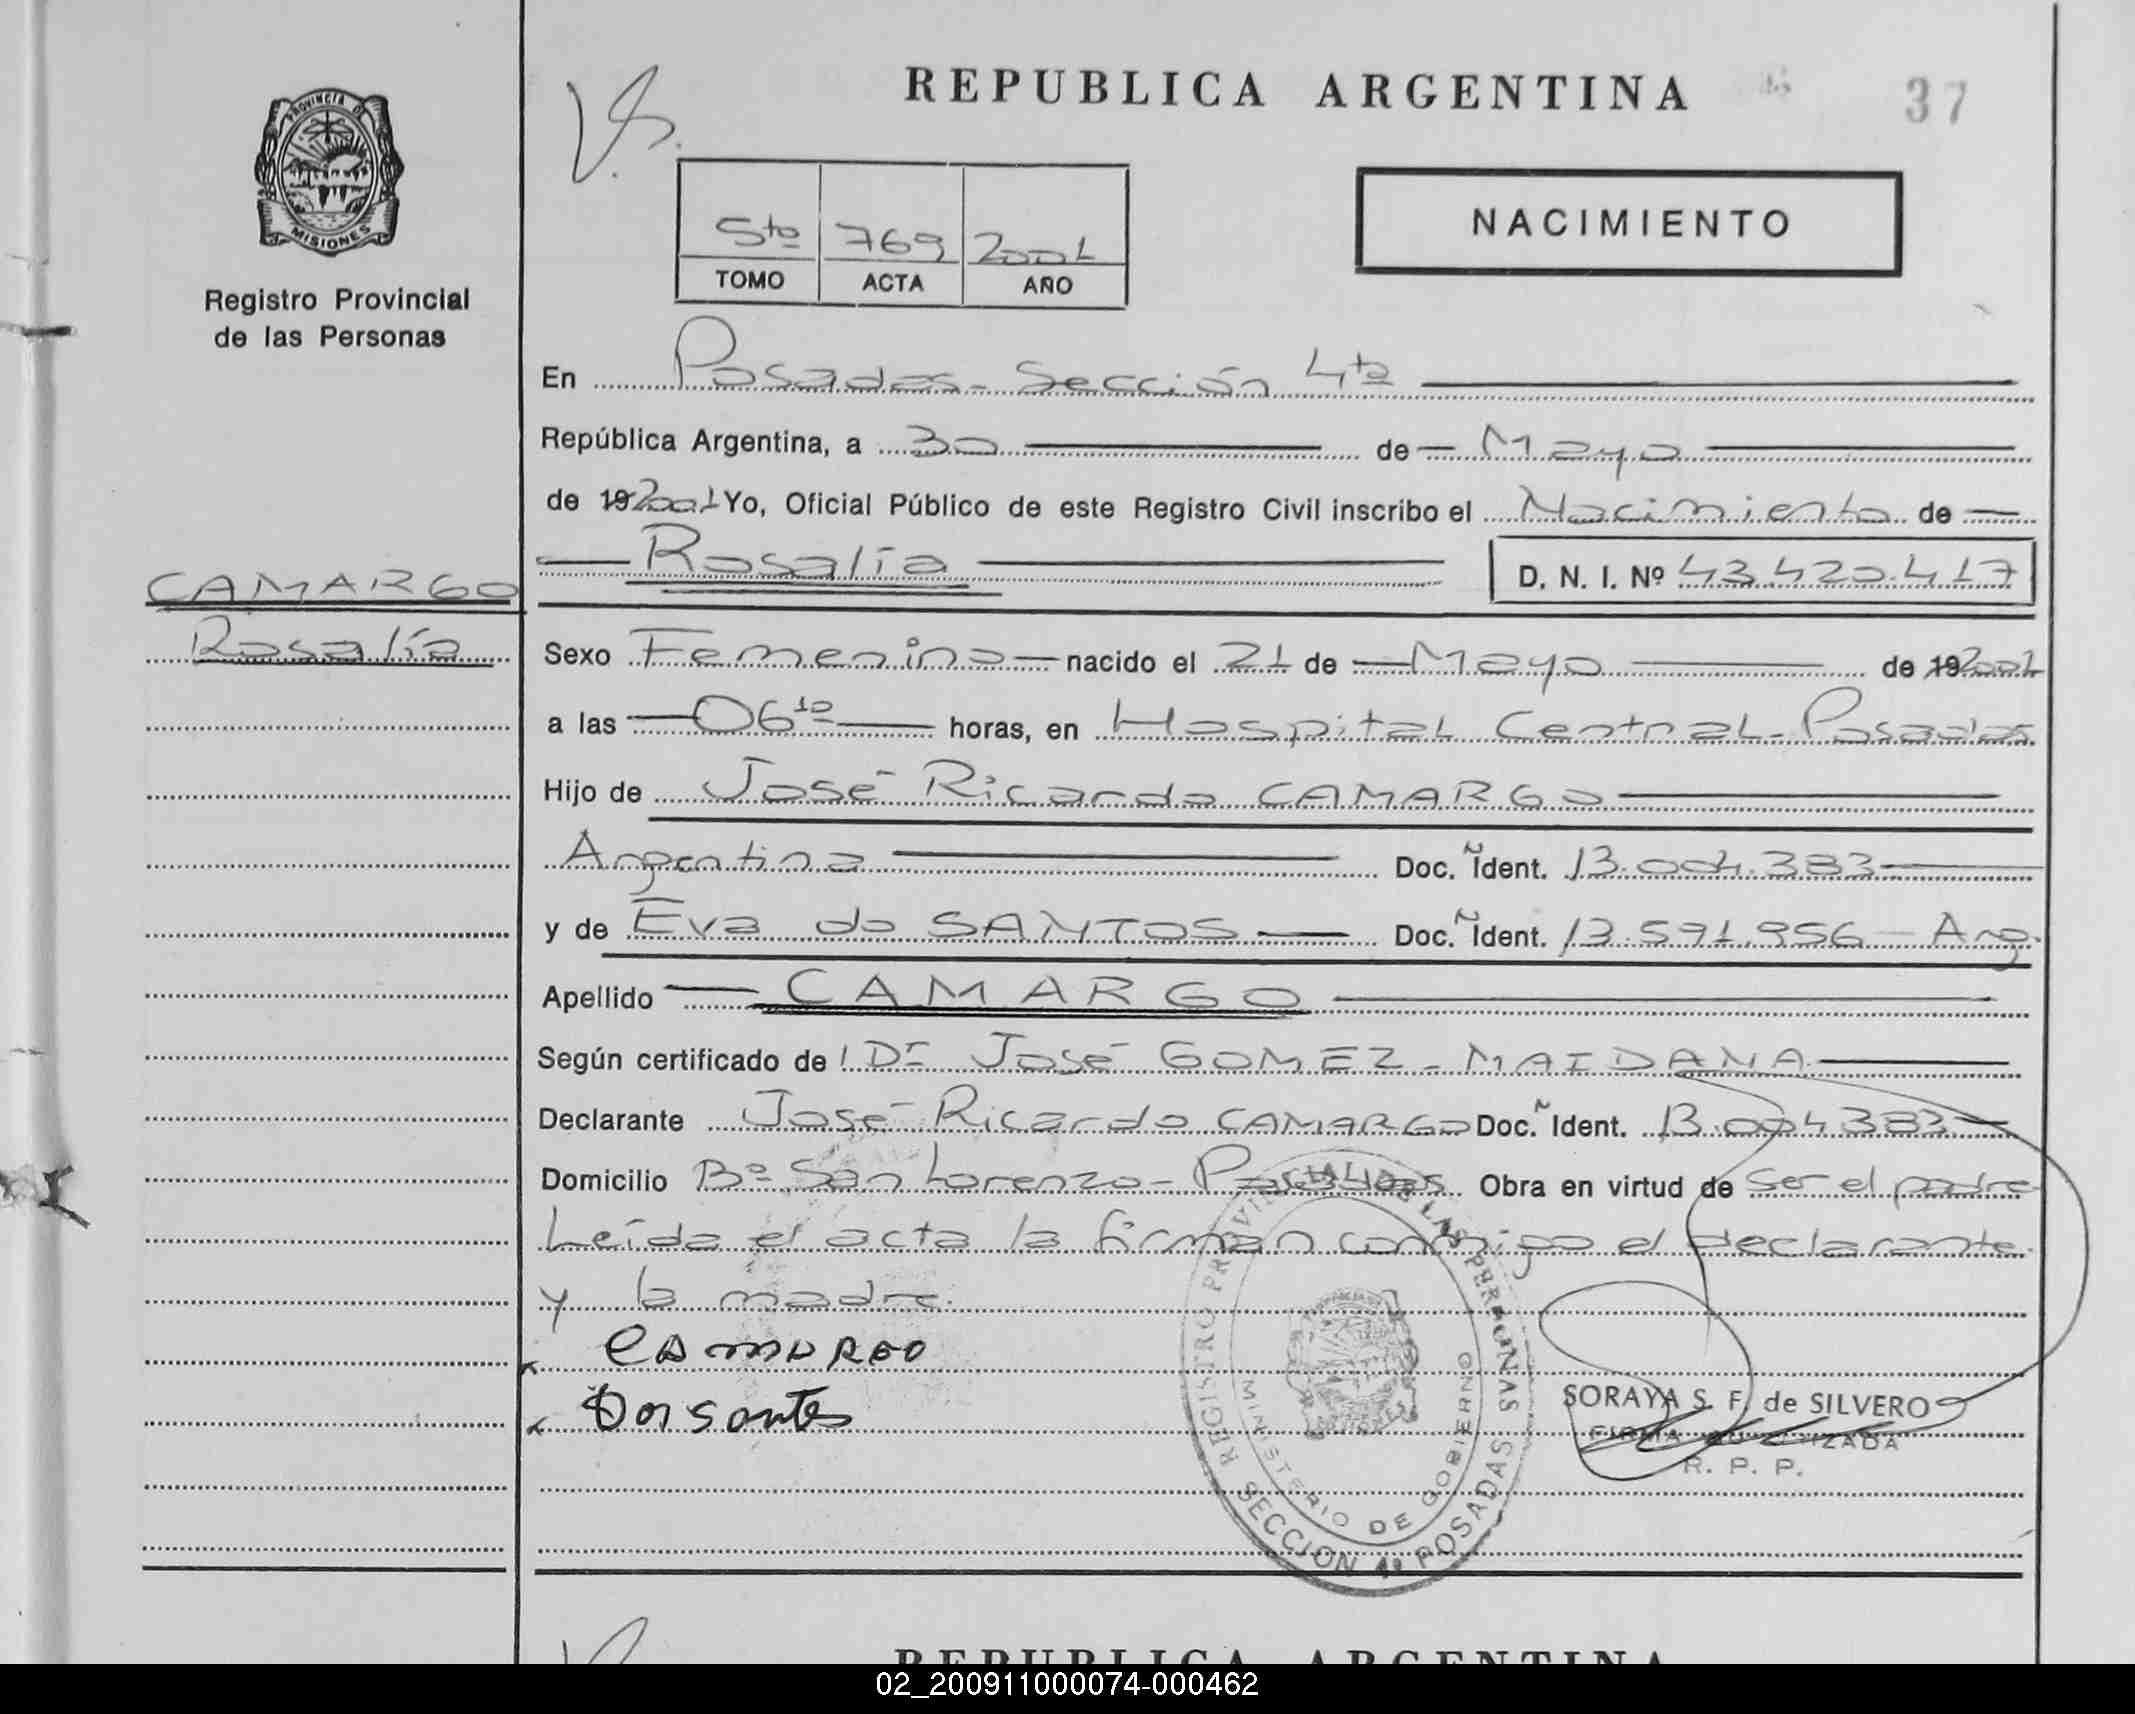 REPUBLICA ARGENTINA
37
PROVINCIA DE
MISIONES
Registro Provincial
de las Personas
5to 769 2001
TOMO ACTA AÑO
NACIMIENTO
En Posadas - Sección 4ta
República Argentina, a 30 de Mayo
de 19 2001 Yo, Oficial Público de este Registro Civil inscribo el Nacimiento de
Rosalía D. N. I. Nº 43.420.417
CAMARGO
Rosalía
Sexo Femenino nacido el 21 de Mayo de 19 2001
a las 06 10 horas, en Hospital Central - Posadas
Hijo de José Ricardo CAMARGO
Argentina Doc. Ñ Ident. 13.004.383
y de Eva do SANTOS Doc. Ñ Ident. 13.591.956 - Arg.
Apellido CAMARGO
Según certificado de Dr José GOMEZ - MAIDANA
Declarante José Ricardo CAMARGO Doc. Ñ Ident. 13.004.383
Domicilio Bº San Lorenzo - Posadas Obra en virtud de ser el padre
Leída el acta la firman conmigo el declarante
y la madre.
CAMARGO
Dossantos
REGISTRO PROVINCIAL DE LAS PERSONAS
MINISTERIO DE GOBIERNO
SECCION 4ª POSADAS
SORAYA S. F. de SILVERO
FIRMA AUTORIZADA
R. P. P.
REPUBLICA ARGENTINA
02_200911000074-000462